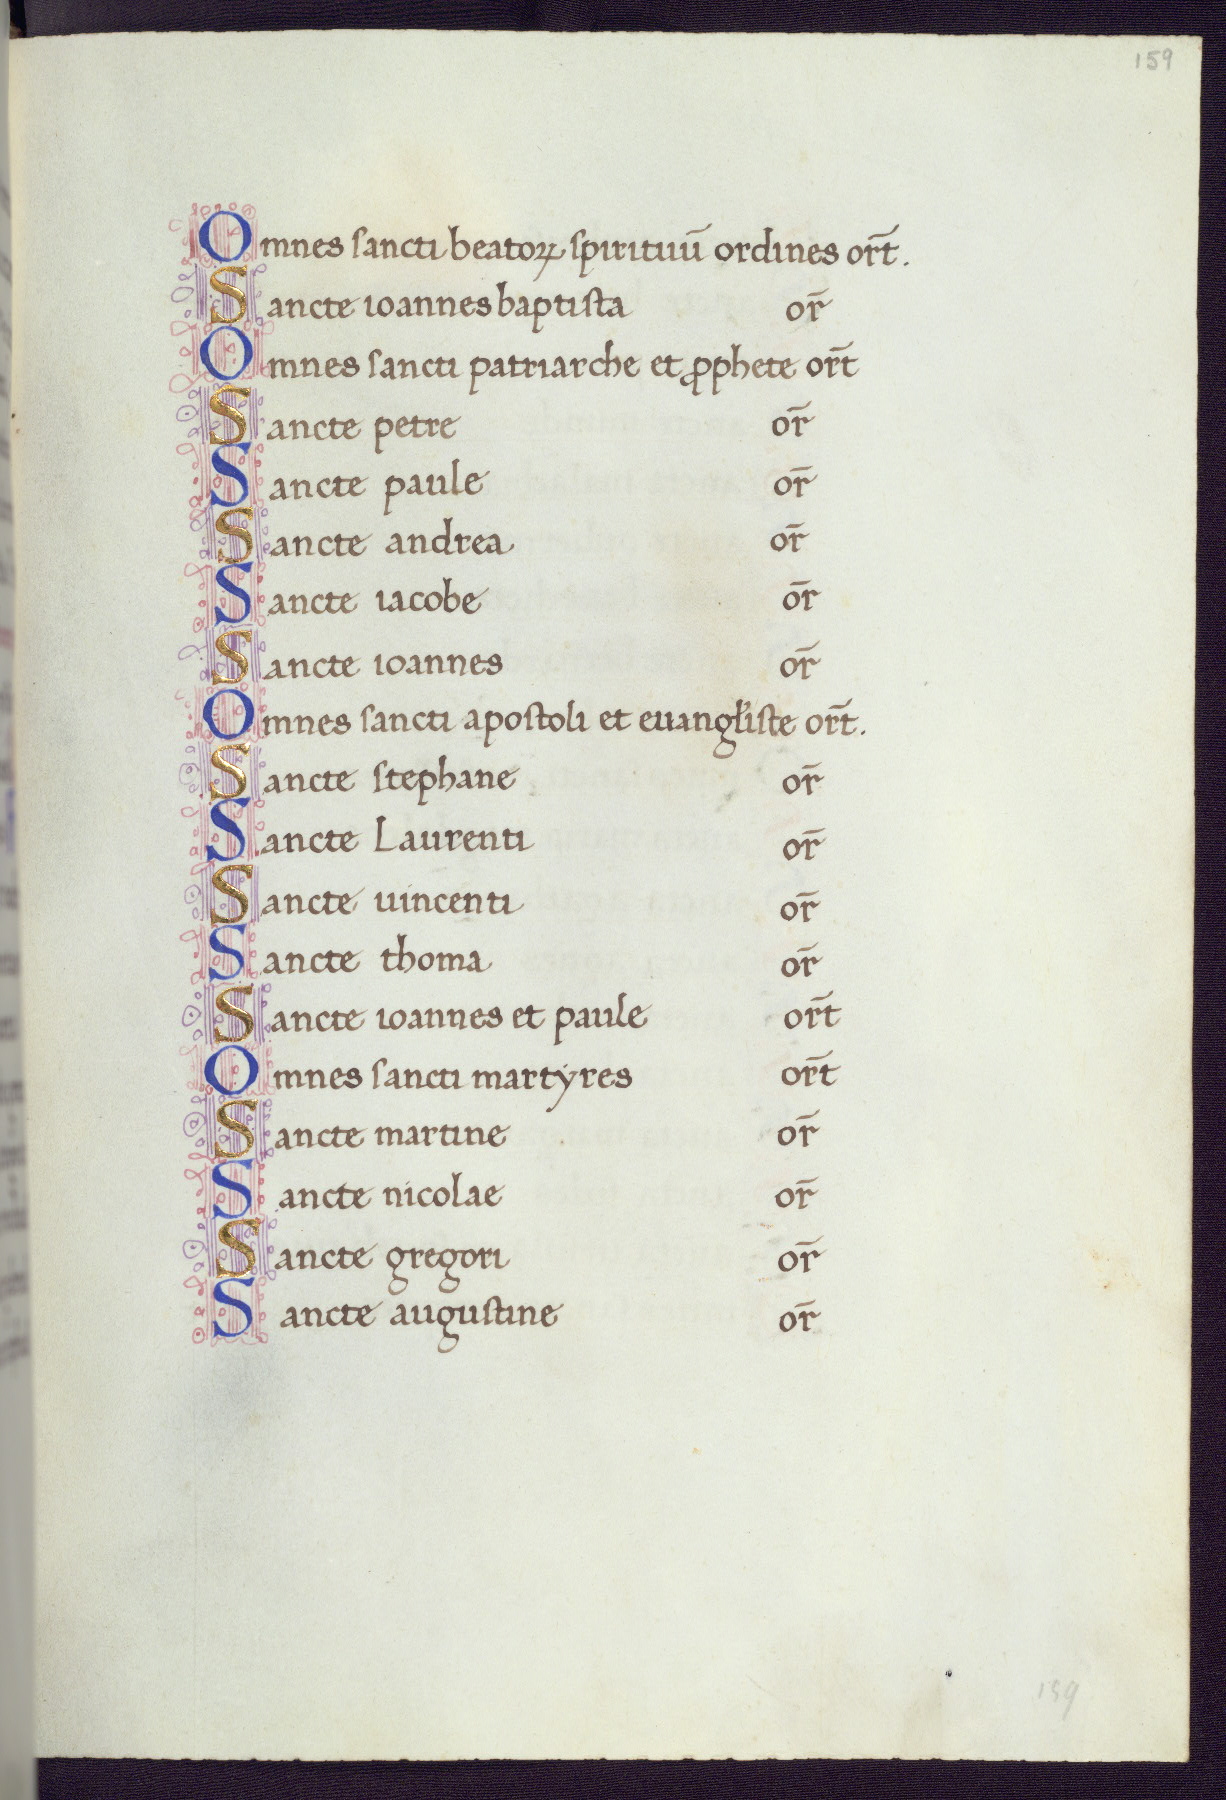 159
Omnes sancti beatoꝝ spirituū ordines or̄t.
Sancte ioannes baptista or̄
Omnes sancti patriarche et ꝓphete or̄t
Sancte petre or̄
Sancte paule or̄
Sancte andrea or̄
Sancte iacobe or̄
Sancte ioannes or̄
Omnes sancti apostoli et euangl̄iste or̄t.
Sancte stephane or̄
Sancte Laurenti or̄
Sancte uincenti or̄
Sancte thoma or̄
Sancte ioannes et paule or̄t
Omnes sancti martyres or̄t
Sancte martine or̄
Sancte nicolae or̄
Sancte gregori or̄
Sancte augustine or̄
159